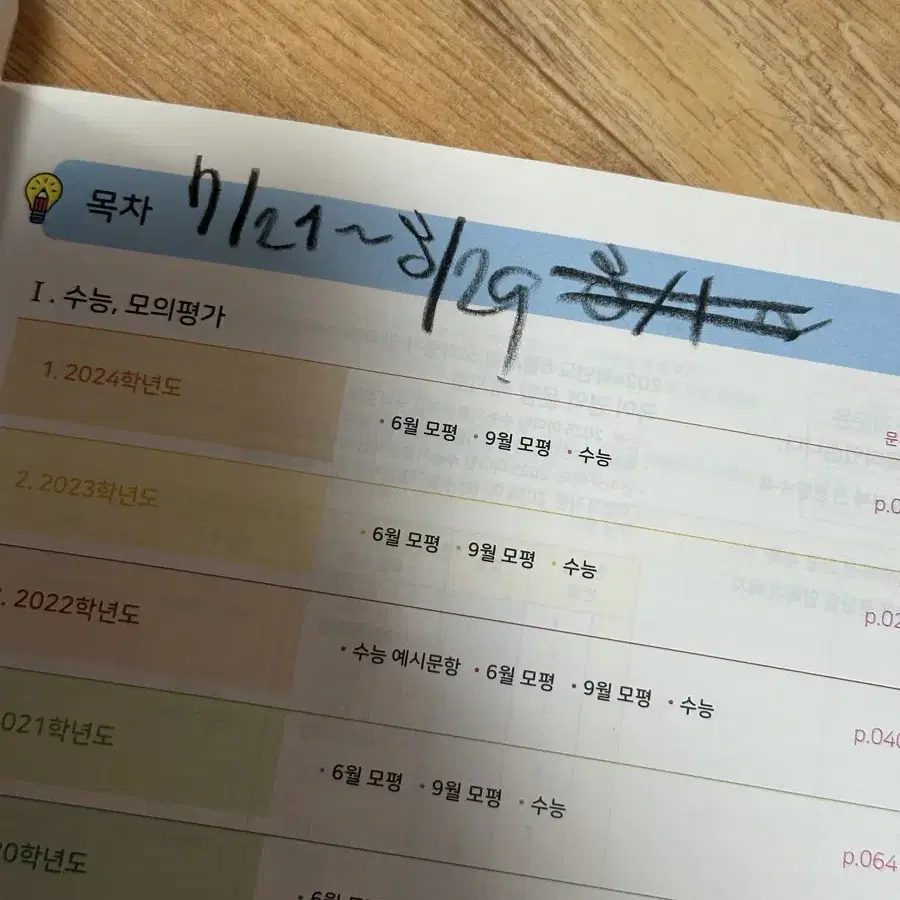 목차 7/21~8/29
I. 수능, 모의평가
1. 2024학년도
• 6월 모평 • 9월 모평 • 수능
2. 2023학년도
• 6월 모평 • 9월 모평 • 수능
. 2022학년도
• 수능 예시문항 • 6월 모평 • 9월 모평 • 수능
p.040
021학년도
• 6월 모평 • 9월 모평 • 수능
p.064
0학년도
• 6월 모평